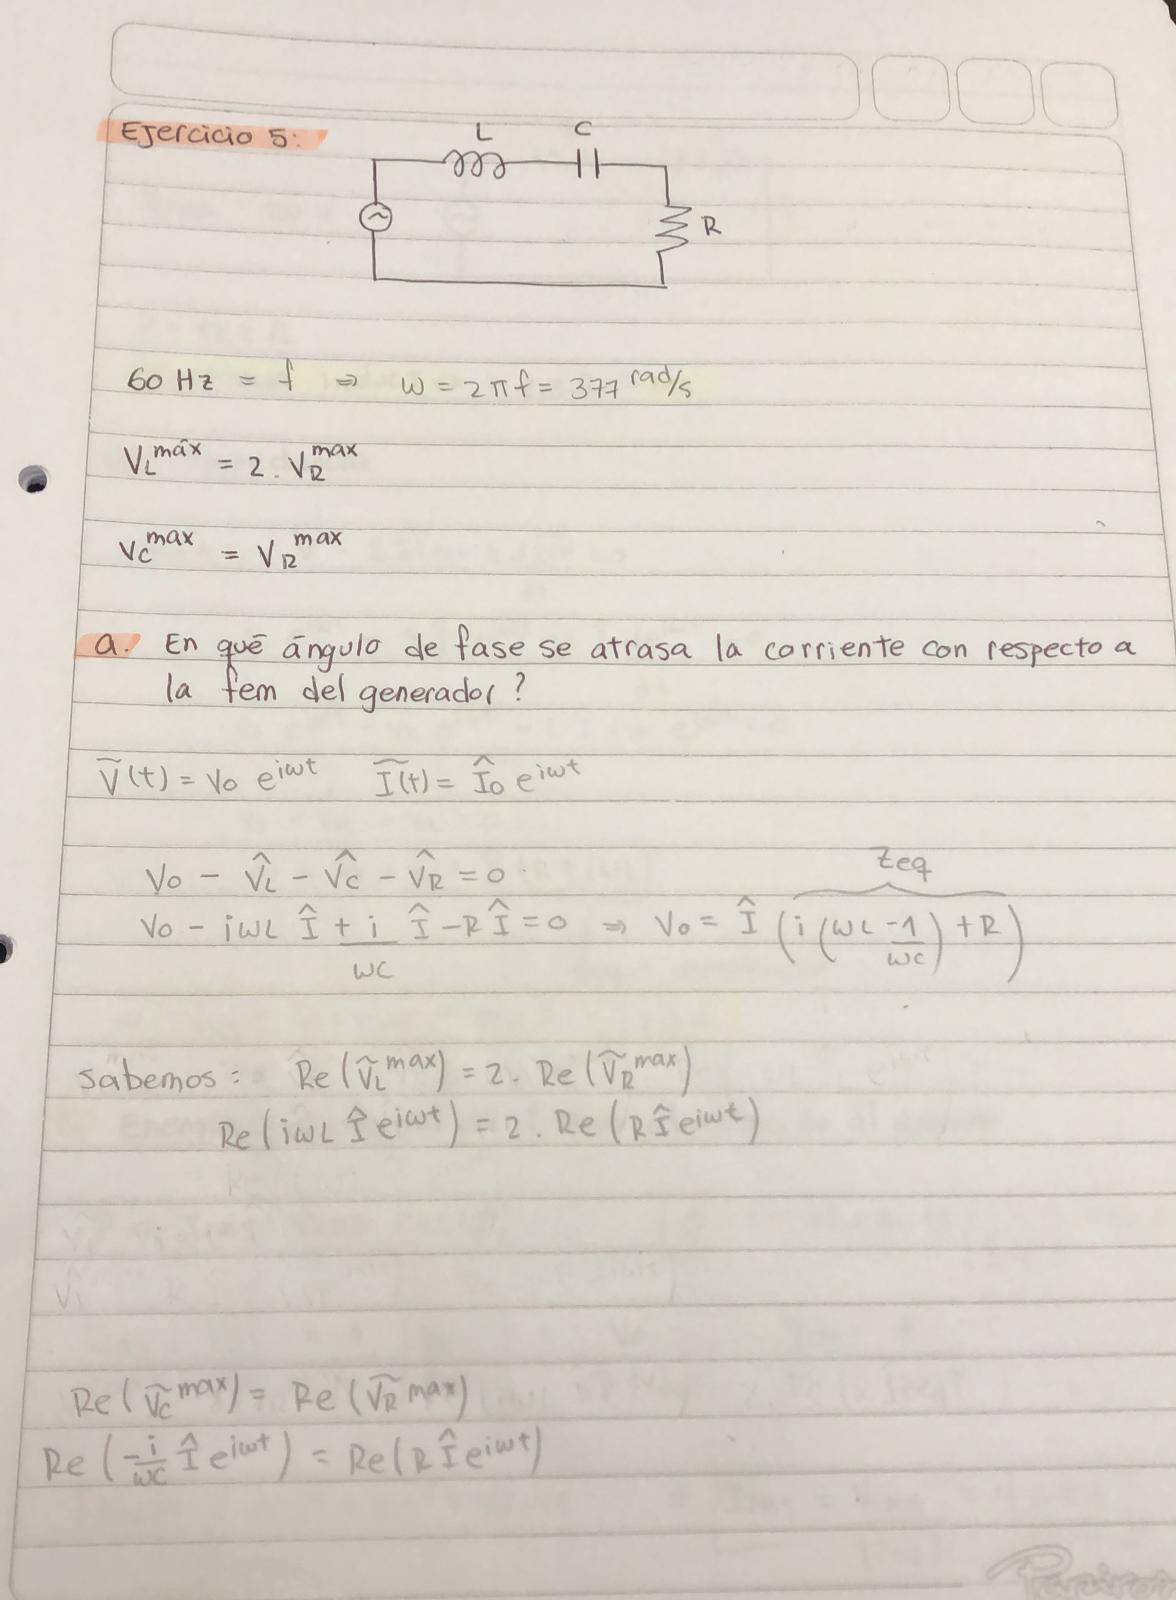 Ejercicio 5:
L C
R
60 Hz = f ⇒ ω = 2πf = 377 rad/s
V_L^máx = 2 . V_R^max
V_C^max = V_R^max
a. En qué ángulo de fase se atrasa la corriente con respecto a
la fem del generador?
Ṽ(t) = V₀ e^{iωt} Ĩ(t) = Î₀ e^{iωt}
Zeq
V₀ - V̂_L - V̂_C - V̂_R = 0
V₀ - iωL Î + i/ωC Î - R Î = 0 ⇒ V₀ = Î (i (ωL - 1/ωC) + R)
sabemos: Re(Ṽ_L^max) = 2. Re(Ṽ_R^max)
Re(iωL Î e^{iωt}) = 2. Re(R Î e^{iωt})
Re(Ṽ_C^max) = Re(Ṽ_R^max)
Re(-i/ωC Î e^{iωt}) = Re(R Î e^{iωt})